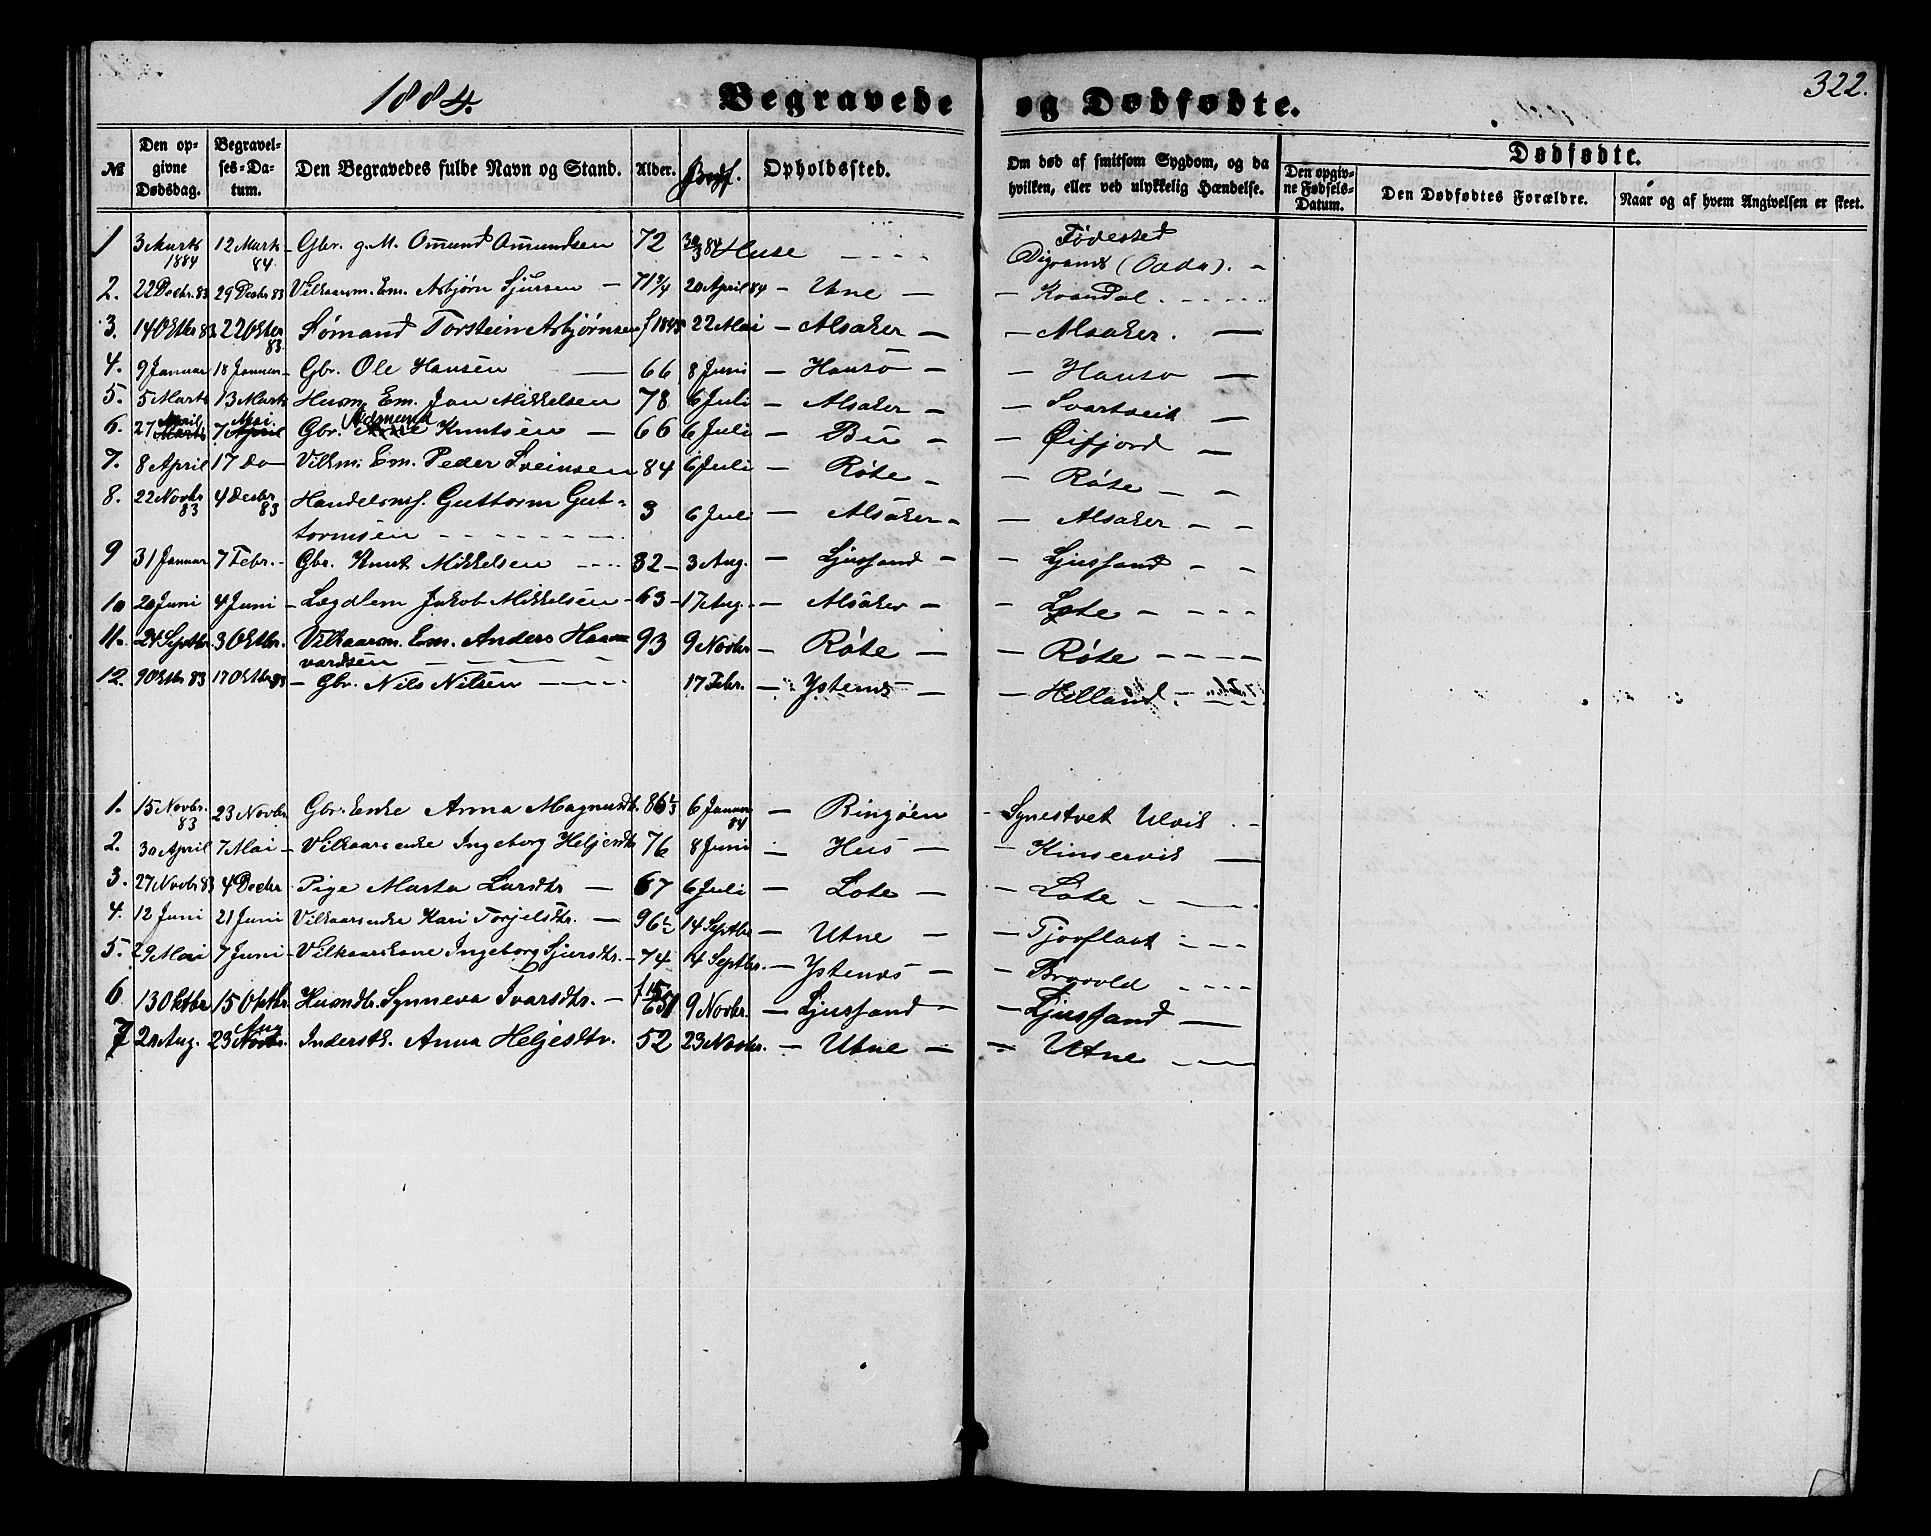 1884. Begravede og Dødfødte. 322.
№ Den opgivne Dødsdag. Begravelses-Datum. Den Begravedes fulde Navn og Stand. Alder. Opholdssted. Om død af smitsom Sygdom, og da hvilken, eller ved ulykkelig Hændelse. Dødfødte. Den opgivne Fødsels-Datum. Den Dødfødtes Forældre. Naar og af hvem Angivelsen er skeet.
Fødested
1 3 Marts 1884 12 Marts 84. Gbr. g. M. Omund Omundsen 72 30/3 84 Huse (Odda).
2. 22 Decbr. 83 29 Decbr 83 Vilkaarsm. Em. Asbjørn Sjursen – 71 3/4 20 April 84 – Utne – – Kvandal.
3. 14 Oktbr 83 22 Oktbr 83. Sømand Torstein Asbjørnsen f 1845 22 Mai – Alsaker – – Alsaker. –
4. 9 Januar 18 Januar – Gbr. Ole Hansen – 66 8 Juni – Hauso – – Hauso –
5. 5 Marts 13 Marts Husm. Em. Jon Mikkelsen 78 6 Juli – Alsaker – – Svartveit –
6. 27 April 7 Mai. Gbr. Aamund Knutsen – 66 6 Juli – Bu – – Øifjord –
7. 8 April 17 do – Vilkm. Em. Peder Sveinsen 84 6 Juli – Røte – – Røte – –
8. 22 Novbr 83 4 Decbr 83 Handelsmf. Guttorm Guttormsen 3 6 Juli – Alsaker – – Alsaker – –
9 31 Januar 7 Febr. – Gbr. Knut Mikkelsen 32 – 3 Aug. – Ljussand – – Ljussand – –
10 20 Juni 4 Juni – Lægdlem Jakob Mikkelsen – 63 – 17 Aug. – Alsaker – – Lote –
11. 24 Septbr. 3 Oktbr. Vilkaarsm. Em. Anders Haavardsen 93 9 Novbr – Røte – – Røte –
12. 9 Oktbr 83 17 Oktbr 83 – Gbr. Nils Nilsen 17 Febr. – Ystenes – – Helland –
1. 15 Novbr. 83 23 Novbr. Gbr. Enke Anna Magnusdtr. 86 1/3 6 Januar 84 – Ringøen – Synestvet Ulvik. –
2. 30 April 7 Mai – Vilkaarsenke Ingeborg Heljesdtr 76 8 Juni – Hus – – Kinservik –
3. 27 Novbr 83 4 Decbr Pige Marta Larsdtr – 67 6 Juli – Lote – – Lote –
4. 12 Juni 21 Juni Vilkaarsenke Kari Torjelsdtr. – 96 14 Septbr – Utne – – Tjoflaat
5. 29 Mai 7 Juni – Vilkaarskone Ingeborg Sjursdtr. – 74 14 Septbr. – Ystenes –
6 13 Oktbr 15 Oktbr. Husmdtr. Synneva Ivarsdtr. – 9 Novbr. – Ljussand – – Ljussand –
7 20 Aug. 23 Aug Inderstk. Anna Heljesdtr. 52 23 Novbr. – Utne – – Utne –